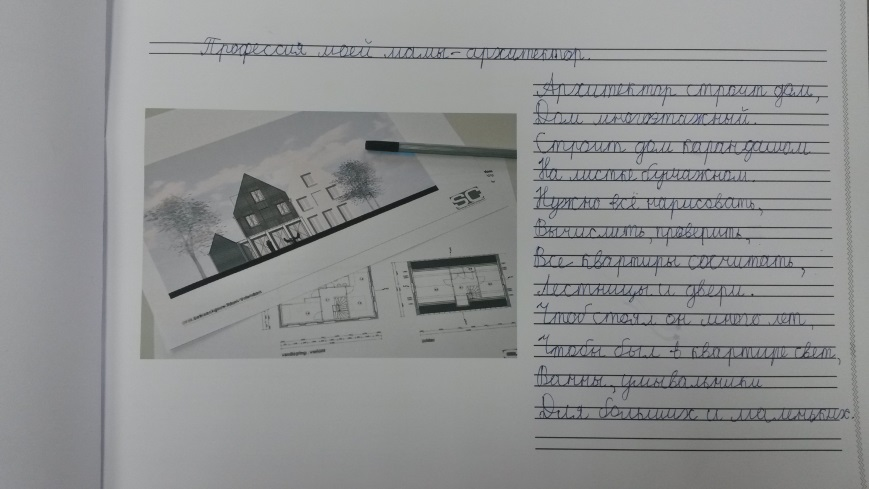 Профессия моей мамы - архитектор.
Архитектор строит дом,
Дом многоэтажный.
Строит дом карандашом
На листе бумажном.
Нужно всё нарисовать,
Вычислить, проверить,
Все квартиры сосчитать,
Лестницы и двери.
Чтоб стоял он много лет,
Чтобы был в квартире свет,
Ванны, умывальники
Для больших и маленьких.
SC